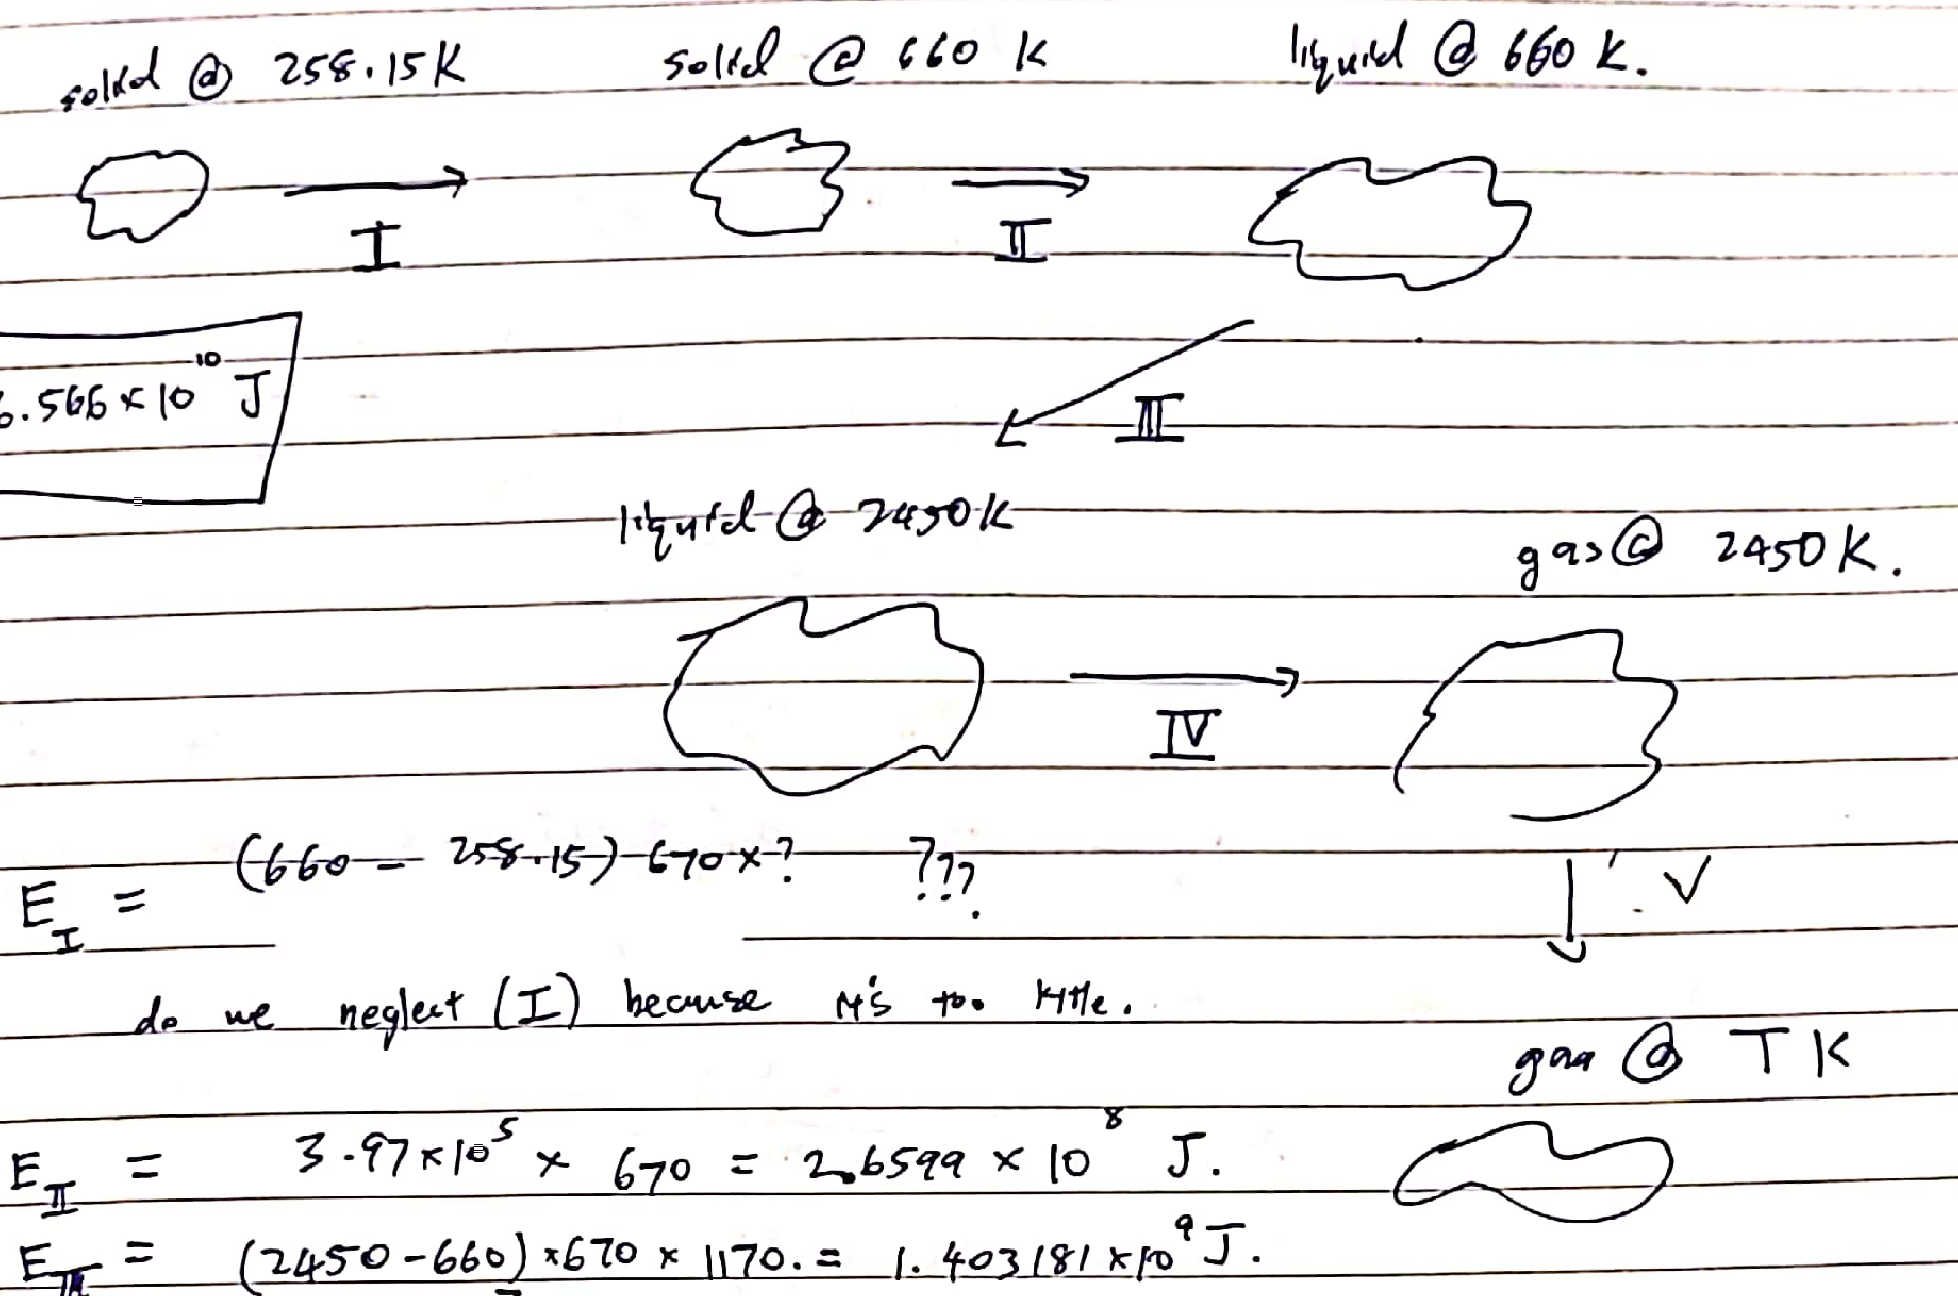 solid @ 258.15K solid @ 660 K liquid @ 660 K.
I II
6.566 × 10^10 J
III
liquid @ 2450K gas @ 2450 K.
IV
E_I = (660 - 258.15) 670 × ? ???
V
do we neglect (I) because it's too little.
gas @ T K
E_II = 3.97 × 10^5 × 670 = 2.6599 × 10^8 J.
E_III = (2450 - 660) × 670 × 1170. = 1.403181 × 10^9 J.